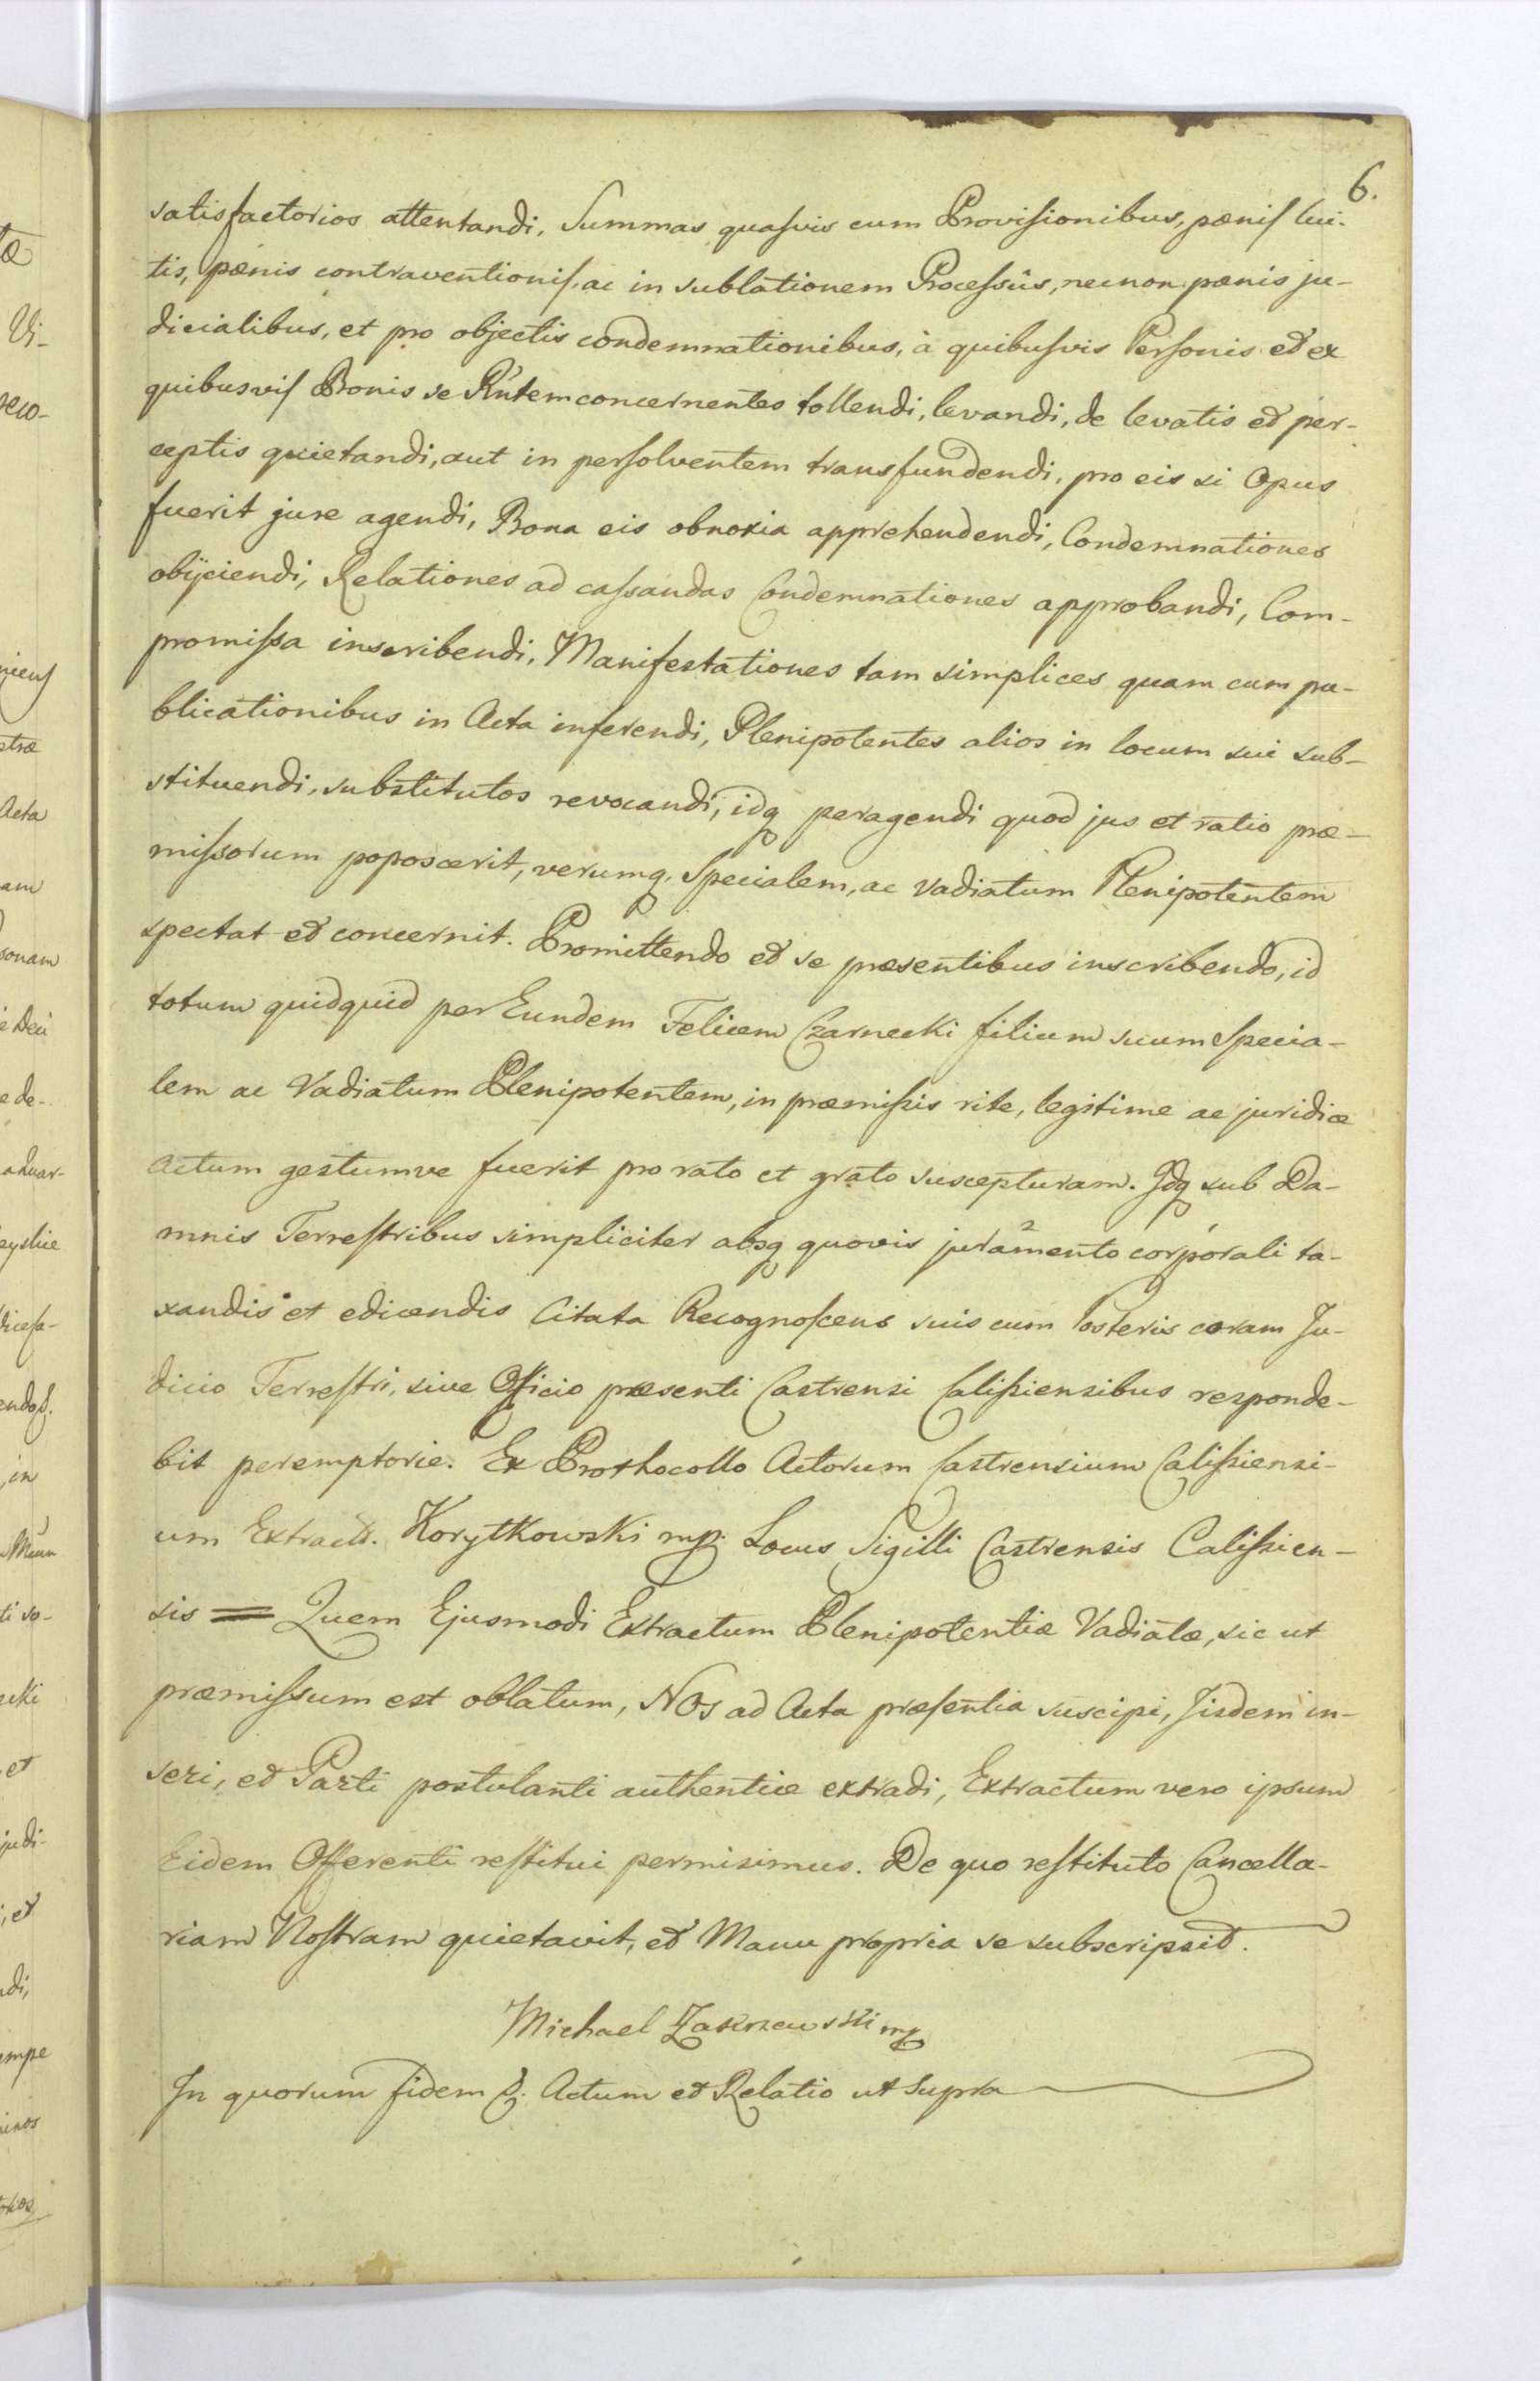 6.
satisfactorios attentandi, Summas quasvis cum Provisionibus, pænis lui-
tis, pænis contraventionis, ac in sublationem Processûs, necnon pænis ju-
dicialibus, et pro objectis condemnationibus, à quibusvis Personis et ex
quibusvis Bonis se Rñtem concernentes tollendi, levandi, de levatis et per-
ceptis quietandi, aut in persolventem transfundendi, pro eis si Opus
fuerit jure agendi, Bona eis obnoxia apprehendendi, Condemnationes
obijciendi, Relationes ad cassandas Condemnationes approbandi, Com-
promissa inscribendi, Manifestationes tam simplices quam cum pu-
blicationibus in Acta inferendi, Plenipotentes alios in locum sui sub-
stituendi, substitutos revocandi, idq peragendi quod jus et ratio præ-
missorum poposcerit, verumq. Specialem, ac vadiatum Plenipotentem
spectat et concernit. Promittendo et se præsentibus inscribendo, id
totum quidquid per Eundem Felicem Czarnecki filium suum Specia-
lem ac Vadiatum Plenipotentem, in præmissis rite, legitime ac juridice
actum gestumve fuerit pro rato et grato suscepturam. Idq sub Da-
mnis Terrestribus simpliciter absq quovis juramento corporali ta-
xandis et edicendis Citata Recognoscens suis cum Posteris coram Ju-
dicio Terrestri, sive Officio præsenti Castrensi Calissiensibus responde-
bit peremptorie. Ex Prothocollo Actorum Castrensium Calissiensi-
um Extract. Korytkowski mp. Locus Sigilli Castrensis Calissien-
sis = Quem Ejusmodi Extractum Plenipotentiæ Vadiatæ, sic ut
præmissum est oblatum, NOs ad Acta præsentia suscipi, Iisdem in-
seri, et Parti postulanti authentice extradi, Extractum vero ipsum
Eidem Offerenti restitui permisimus. De quo restituto Cancella-
riam Nostram quietavit, et Manu propria se subscripsit.
Michael Zakrzewski mp
In quorum fidem &. Actum et Relatio ut supra